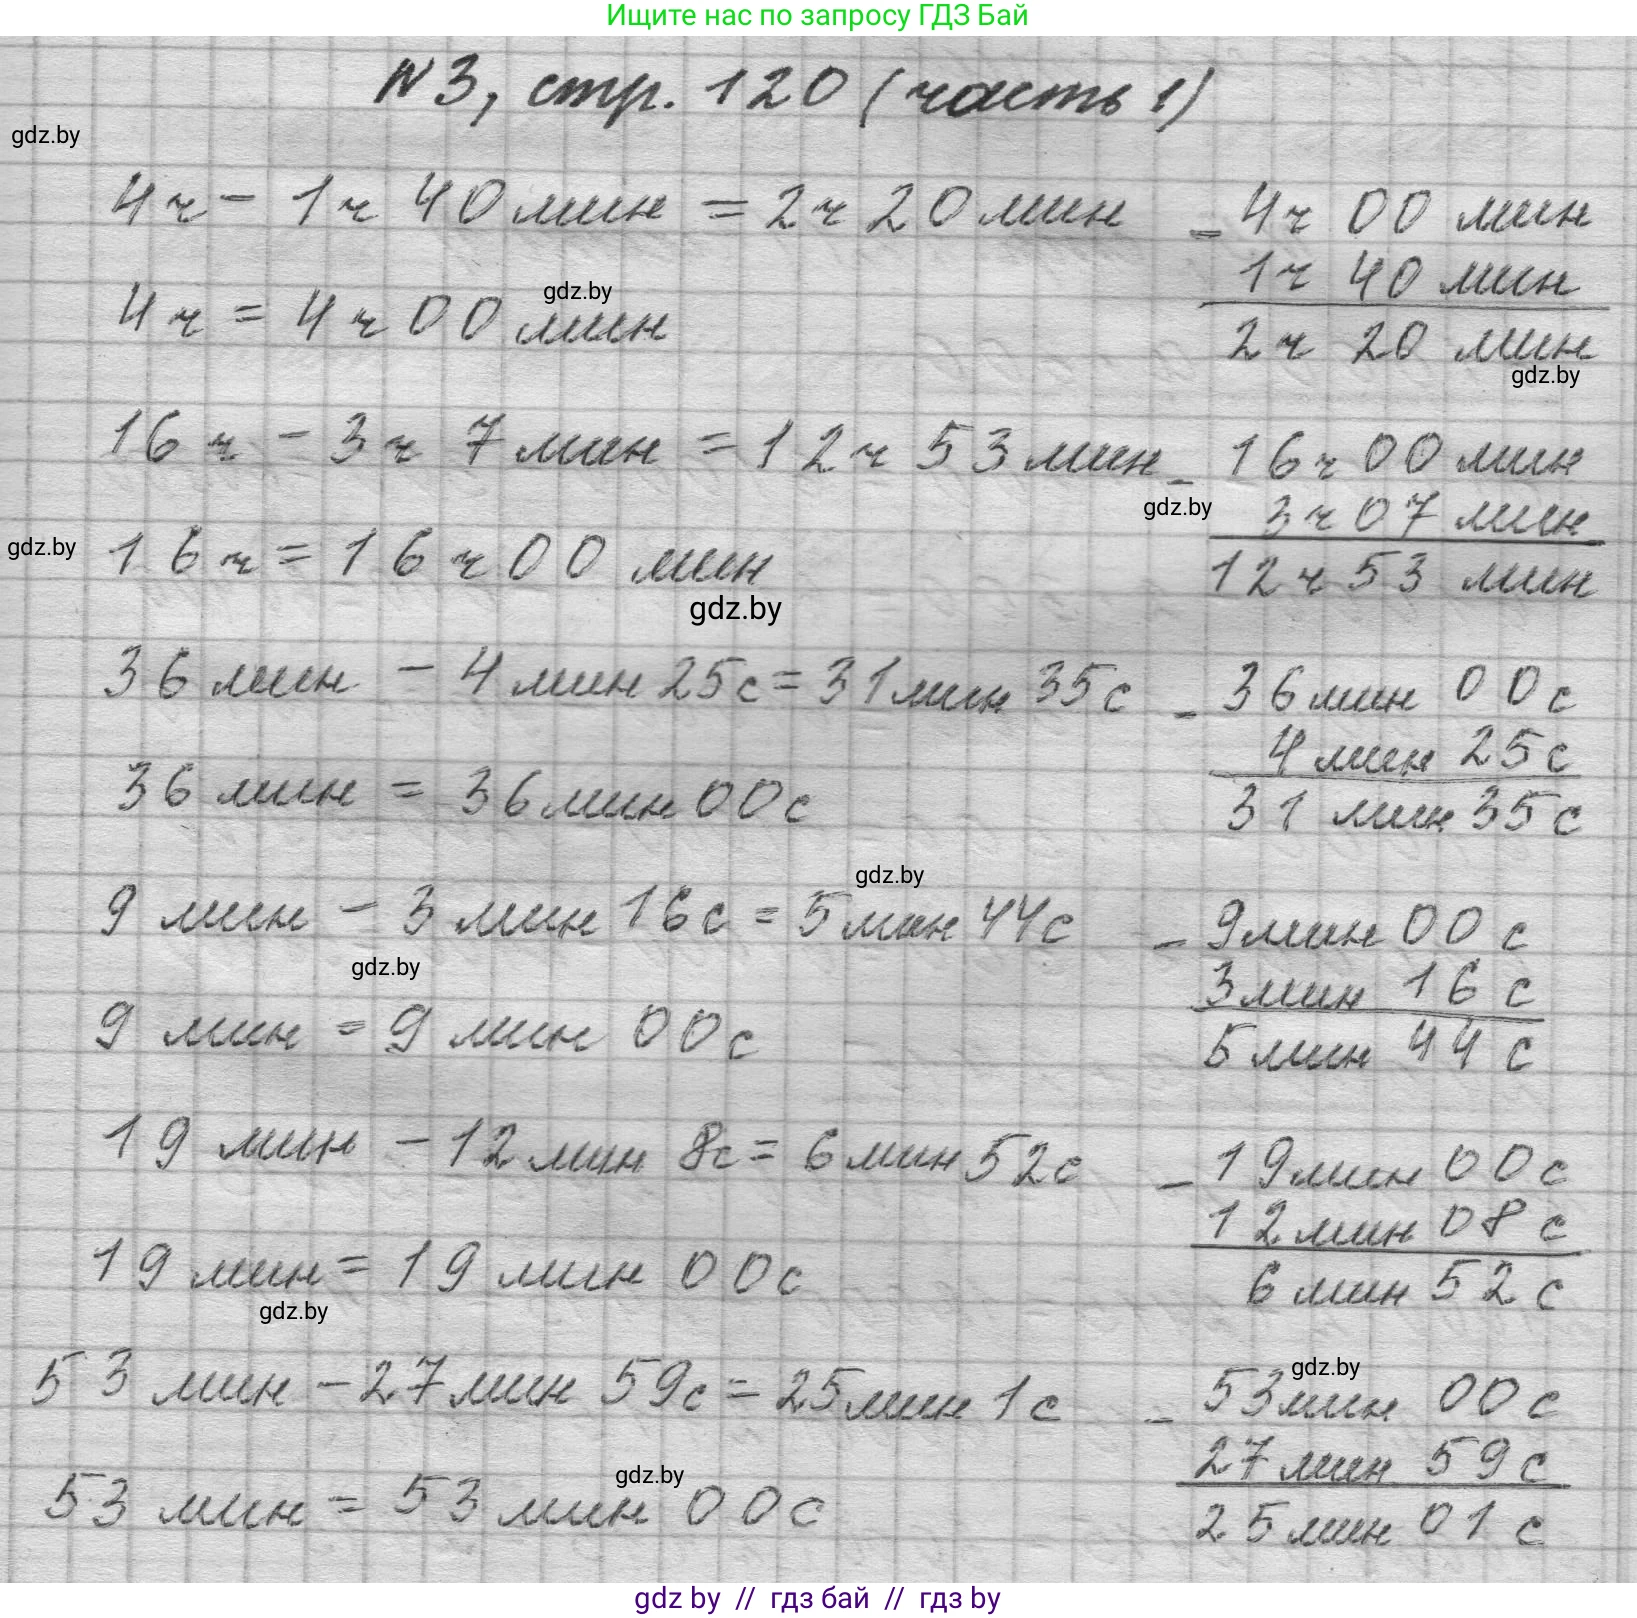 Ищите нас по запросу ГДЗ Бай
№3, стр. 120 (часть 1)
gdz.by
4ч - 1ч 40 мин = 2ч 20 мин
- 4ч 00 мин
1ч 40 мин
2ч 20 мин
gdz.by
4ч = 4ч 00 мин
gdz.by
16ч - 3ч 7 мин = 12ч 53 мин
- 16ч 00 мин
3ч 07 мин
12ч 53 мин
gdz.by
gdz.by
16ч = 16ч 00 мин
gdz.by
36 мин - 4 мин 25с = 31 мин 35с
- 36 мин 00с
4 мин 25с
31 мин 35с
36 мин = 36 мин 00с
gdz.by
9 мин - 3 мин 16с = 5 мин 44с
- 9 мин 00с
3 мин 16с
5 мин 44с
gdz.by
9 мин = 9 мин 00с
19 мин - 12 мин 8с = 6 мин 52с
- 19 мин 00с
12 мин 08с
6 мин 52с
19 мин = 19 мин 00с
gdz.by
53 мин - 27 мин 59с = 25 мин 1с
gdz.by
- 53 мин 00с
27 мин 59с
25 мин 01с
gdz.by
53 мин = 53 мин 00с
gdz by // гдз бай // гдз by